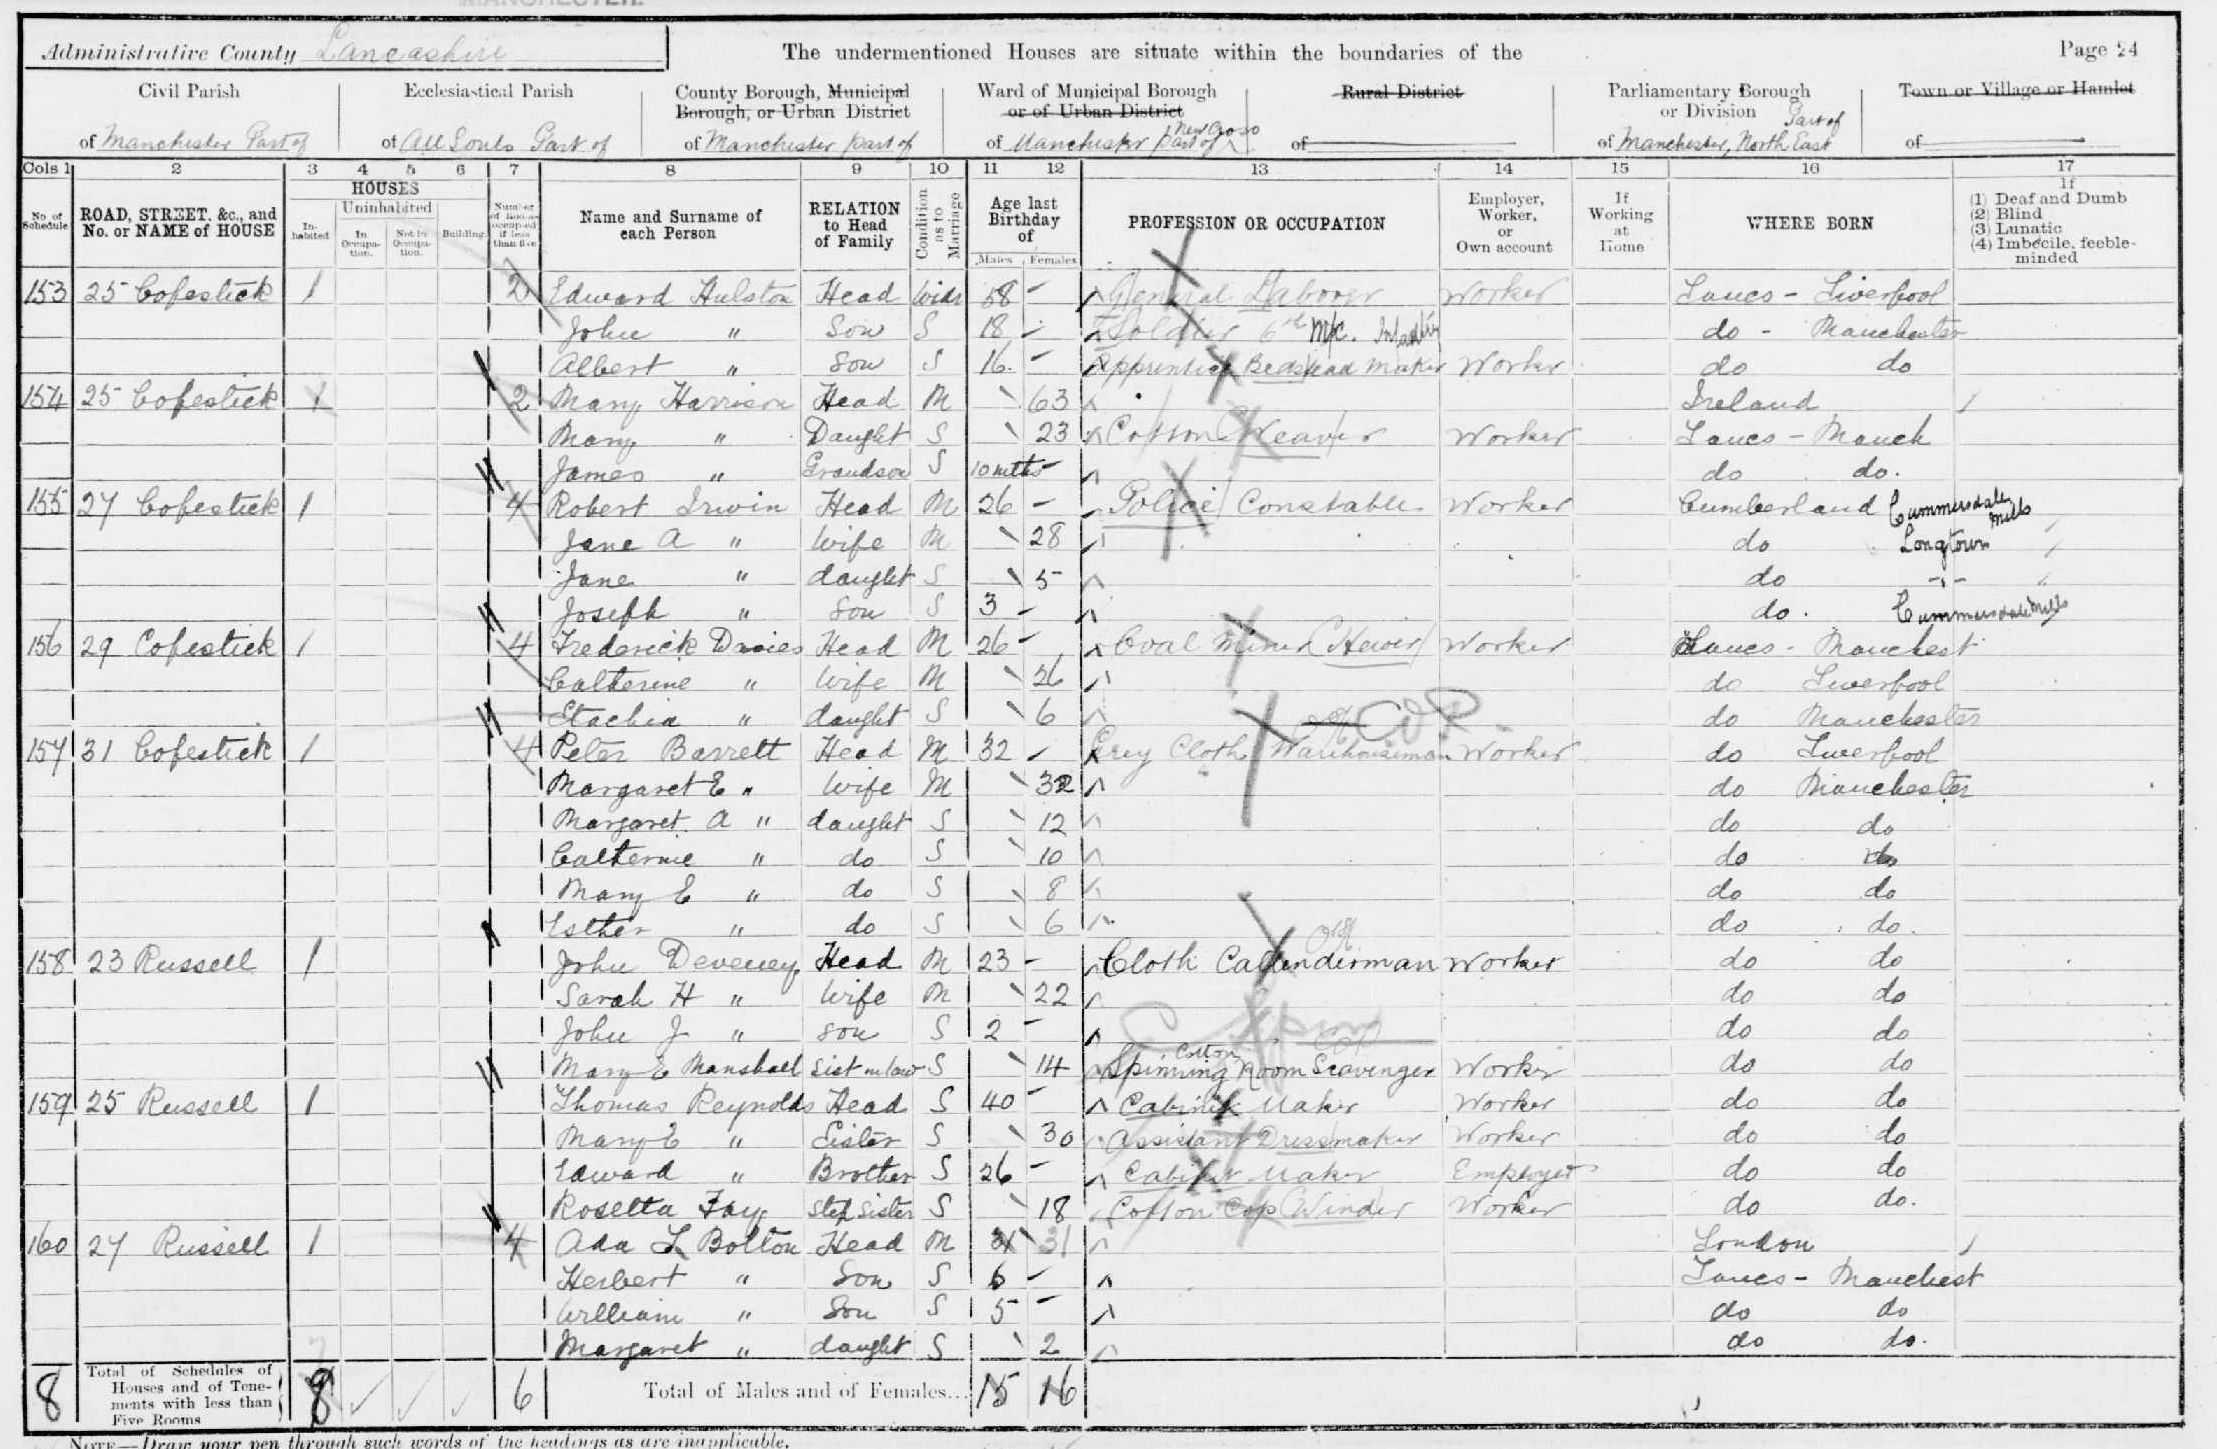 MANCHESTER.
Administrative County Lancashire The undermentioned Houses are situate within the boundaries of the Page 24
Civil Parish Ecclesiastical Parish County Borough, Municipal Borough, or Urban District Ward of Municipal Borough or of Urban District Rural District Parliamentary Borough or Division Town or Village or Hamlet
of Manchester Part of of All Souls Part of of Manchester part of of Manchester part of New Cross of of Manchester, North East Part of of
Cols 1 2 3 4 5 6 7 8 9 10 11 12 13 14 15 16 17
No of Schedule ROAD, STREET, &c., and No. or NAME of HOUSE HOUSES Inhabited Uninhabited In Occupation. Not in Occupation. Building Number of Rooms occupied if less than five Name and Surname of each Person RELATION to Head of Family Condition as to Marriage Age last Birthday of Males Females PROFESSION OR OCCUPATION Employer, Worker, or Own account If Working at Home WHERE BORN If (1) Deaf and Dumb (2) Blind (3) Lunatic (4) Imbecile, feeble-minded
153 25 Copestick 1 2 Edward Hulston Head Widr 58 - General Laborer Worker Lancs - Liverpool
John " Son S 18 - Soldier 6th M/c. Infantry do - Manchester
Albert " Son S 16 - Apprentice Bedstead Maker Worker do do
154 25 Copestick 1 2 Mary Harrison Head M 63 Ireland
Mary " Daught S 23 Cotton Weaver Worker Lancs - Manch
James " Grandson S 10 mths - do do.
155 27 Copestick 1 4 Robert Irwin Head M 26 - Police Constable Worker Cumberland Cummersdale Mills
Jane A " Wife M 28 do Longtown
Jane " daught S 5 do -"-
Joseph " Son S 3 - do. Cummersdale Mills
156 29 Copestick 1 4 Frederick Davies Head M 26 - Coal Miner (Hewer) Worker Lancs - Manchest
Catherine " Wife M 26 do Liverpool
Stachia " daught S 6 do Manchester
157 31 Copestick 1 4 Peter Barrett Head M 32 - Grey Cloth Warehouseman Worker do Liverpool
Margaret E " Wife M 32 do Manchester
Margaret A " daught S 12 do do
Catherine " do S 10 do do
Mary E " do S 8 do do
Esther " do S 6 do do.
158 23 Russell 1 John Deveney Head M 23 - Cloth Callenderman Worker do do
Sarah H " Wife M 22 do do
John J " son S 2 - do do
Mary E Manshall Sist in law S 14 Cotton Spinning Room Scavenger Worker do do
159 25 Russell 1 Thomas Reynolds Head S 40 - Cabinet Maker Worker do do
Mary E " Sister S 30 Assistant Dressmaker Worker do do
Edward " Brother S 26 - Cabinet Maker Employer do do
Rosetta Fay Step Sister S 18 Cotton Cop Winder Worker do do.
160 27 Russell 1 4 Ada L Bolton Head M 31 31 London
Herbert " Son S 6 - Lancs - Manchest
William " Son S 5 - do do
Margaret " daught S 2 do do.
8 Total of Schedules of Houses and of Tenements with less than Five Rooms 8 6 Total of Males and of Females... 15 16
NOTE—Draw your pen through such words of the headings as are inapplicable.